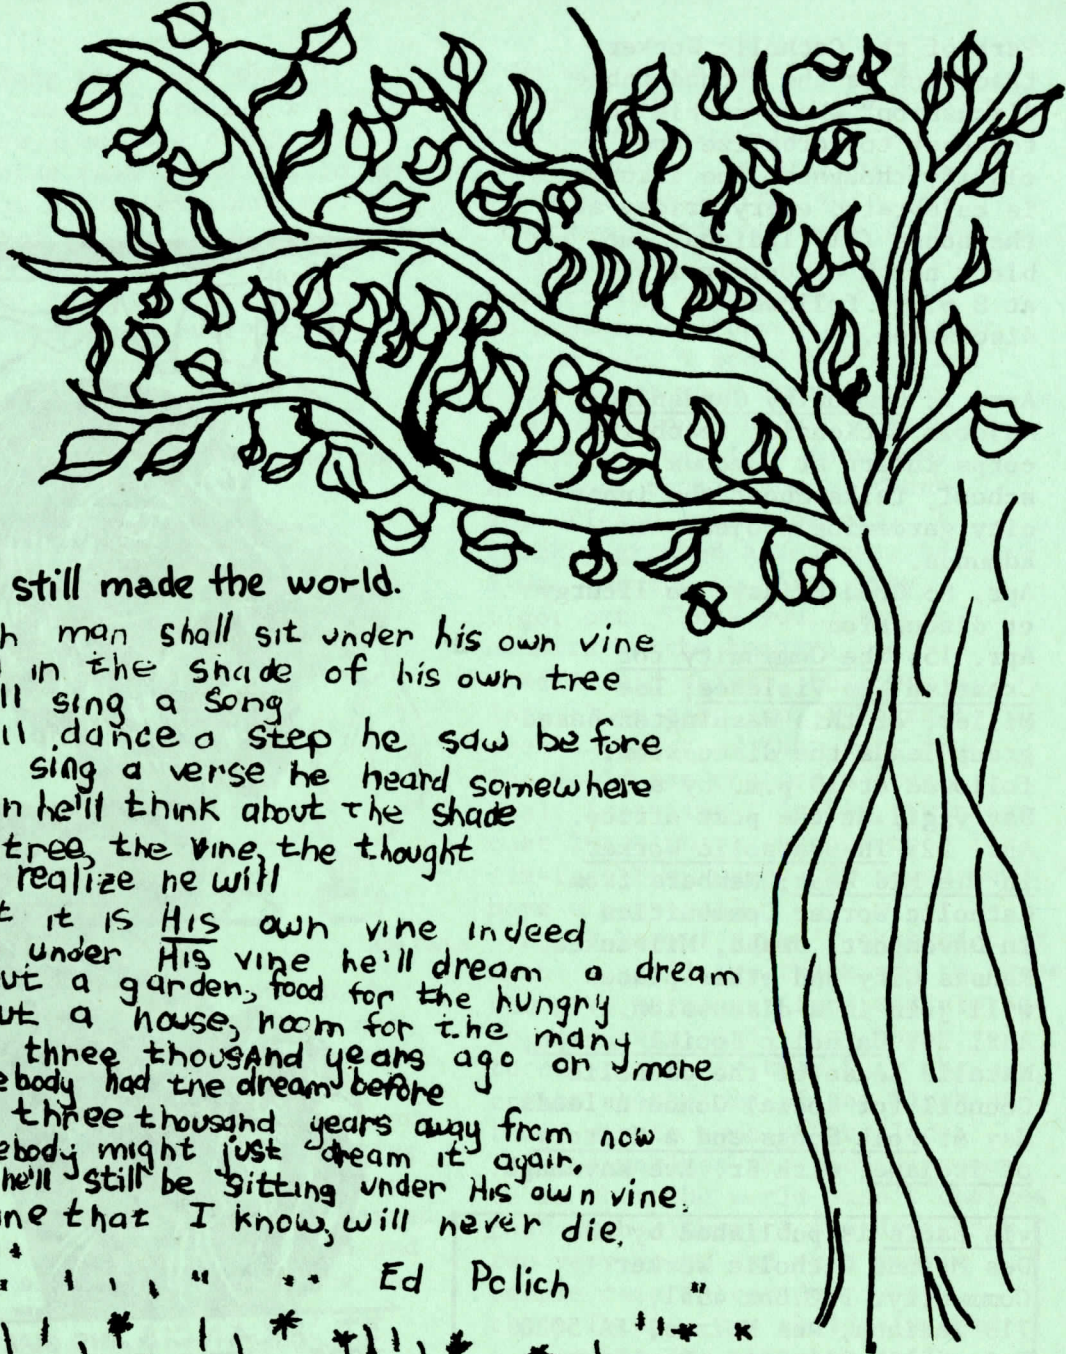 still made the world.
h man shall sit under his own vine
in the shade of his own tree
ll sing a song
ll dance a step he saw before
sing a verse he heard somewhere
n he'll think about the shade
tree, the vine, the thought
realize he will
t it is HIS own vine indeed
under His vine he'll dream a dream
ut a garden, food for the hungry
ut a house, room for the many
three thousand years ago or more
ebody had the dream before
three thousand years away from now
ebody might just dream it again.
he'll still be sitting under His own vine.
ne that I know, will never die.
Ed Polich